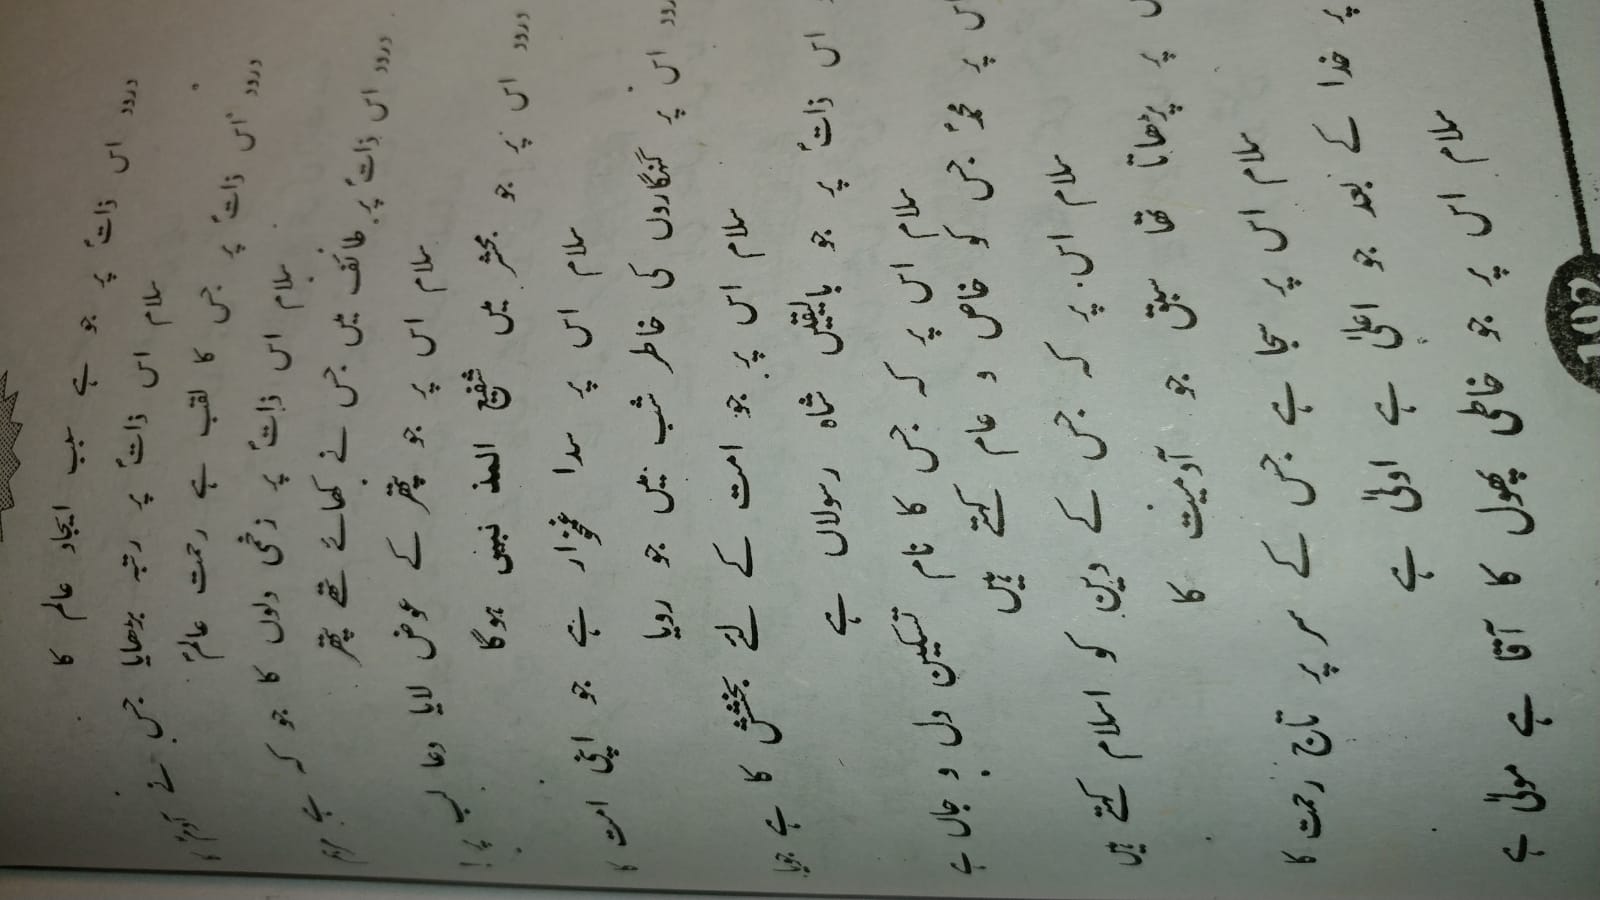 درود اس ذاتؐ پر جو ہے سبب ایجاد عالم کا
سلام اس ذاتؐ پر رتبہ بڑھایا جس نے آدمؑ کا
درود اس ذاتؐ پر جس کا لقب ہے رحمت عالمؐ
سلام اس ذاتؐ پر زخمی دلوں کا جو کہ ہے مرہم
درود اس ذاتؐ پر طائف میں جس نے کھائے تھے پتھر
سلام اس پر جو پتھر کے عوض لایا دعا لب پر!
درود اس پر جو محشر میں شفیع المذ نبیں ہوگا
سلام اس پر سدا غمخوار ہے جو اپنی امت کا
رود اس پر گنہگاروں کی خاطر شب میں جو رویا
سلام اس پر جو امت کے لئے بخشش کا ہے جویا
اس ذاتؐ پر جو بالیقیں شاہ رسولاں ہے
سلام اس پر کہ جس کا نام تسکین دل و جاں ہے
اس پر محمدؐ جس کو خاص و عام کہتے ہیں
سلام اس پر کہ جس کے دین کو اسلام کہتے ہیں
پر پڑھاتا تھا سبق جو آدمیت کا
سلام اس پر سجا ہے جس کے سر پر تاج رحمت کا
پر خدا کے بعد جو اعلیٰ ہے اولیٰ ہے
سلام اس پر جو خاطی پھول کا آقا ہے مولیٰ ہے
192